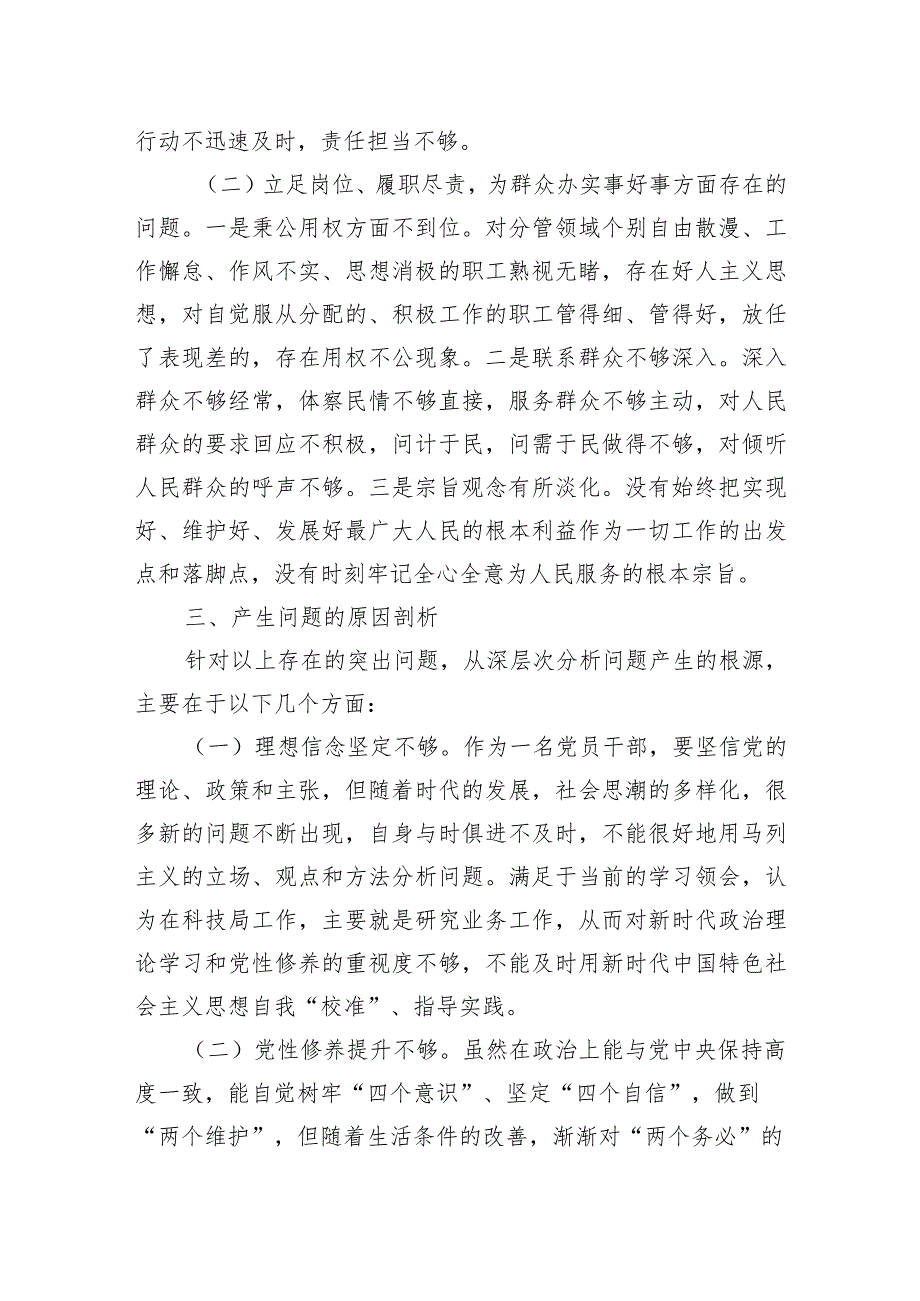 行动不迅速及时，责任担当不够。
（二）立足岗位、履职尽责，为群众办实事好事方面存在的
问题。一是秉公用权方面不到位。对分管领域个别自由散漫、工
作懈怠、作风不实、思想消极的职工熟视无睹，存在好人主义思
想，对自觉服从分配的、积极工作的职工管得细、管得好，放任
了表现差的，存在用权不公现象。二是联系群众不够深入。深入
群众不够经常，体察民情不够直接，服务群众不够主动，对人民
群众的要求回应不积极，问计于民，问需于民做得不够，对倾听
人民群众的呼声不够。三是宗旨观念有所淡化。没有始终把实现
好、维护好、发展好最广大人民的根本利益作为一切工作的出发
点和落脚点，没有时刻牢记全心全意为人民服务的根本宗旨。
三、产生问题的原因剖析
针对以上存在的突出问题，从深层次分析问题产生的根源，
主要在于以下几个方面：
（一）理想信念坚定不够。作为一名党员干部，要坚信党的
理论、政策和主张，但随着时代的发展，社会思潮的多样化，很
多新的问题不断出现，自身与时俱进不及时，不能很好地用马列
主义的立场、观点和方法分析问题。满足于当前的学习领会，认
为在科技局工作，主要就是研究业务工作，从而对新时代政治理
论学习和党性修养的重视度不够，不能及时用新时代中国特色社
会主义思想自我“校准”、指导实践。
（二）党性修养提升不够。虽然在政治上能与党中央保持高
度一致，能自觉树牢“四个意识”、坚定“四个自信”，做到
“两个维护”，但随着生活条件的改善，渐渐对“两个务必”的